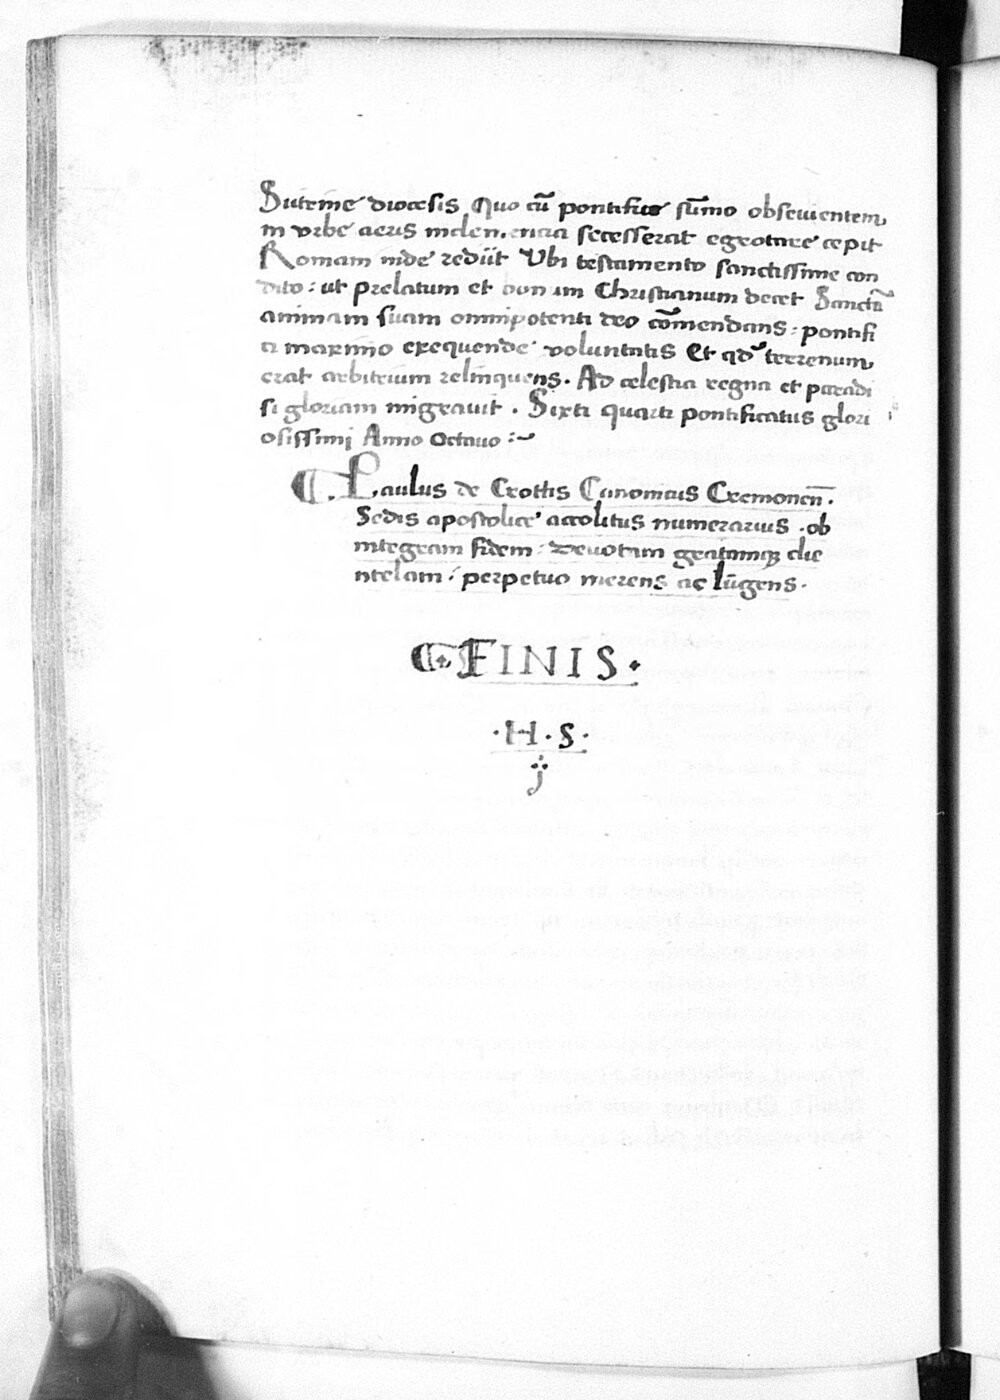 Sutrine diocesis Quo cū pontifice sūmo obseuientem
in vrbe aeris inclementia secesserat egrotare cepit
Romam inde rediit Vbi testamento sanctissime con
dito : ut prelatum et bonum Christianum decet Sanctā
animam suam omnipotenti deo cōmendans : pontifi
ci maximo exequende voluntatis Et qd' terrenum
erat arbitrium relinquens . Ad celestia regna et paradi
si gloriam migrauit . Sixti quarti pontificatus glori
osissimi Anno Octauo :~
Paulus de Crottis Canonicus Cremonen̄ .
Sedis apostolice accolitus numerarius . ob
integram fidem : deuotam gratamqꝫ clie
ntelam : perpetuo merens ac lūgens .
FINIS .
. H . S .
j